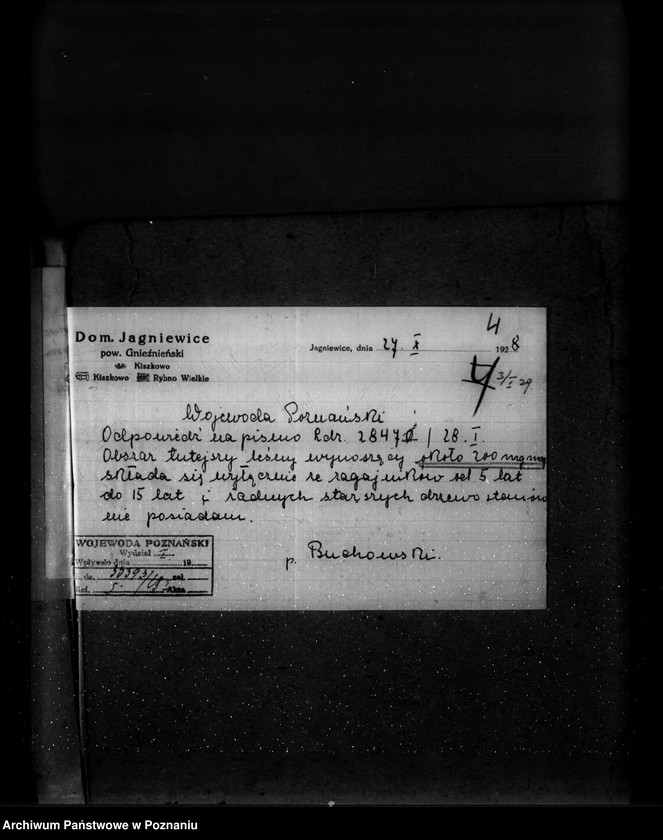 4
Dom. Jagniewice
pow. Gnieźnieński
Kiszkowo
Kiszkowo Rybno Wielkie
Jagniewice, dnia 27 X 1928
3/I 29
Wojewoda Poznański
Odpowiedź na pismo Ldr. 2847 / 28. I.
Obszar tutejszy leśny wynoszący około 200 mg
składa się wyłącznie ze zagajników od 5 lat
do 15 lat i żadnych starszych drzewostanów
nie posiadam.
p. Buchowski.
WOJEWODA POZNAŃSKI
Wydział I
Wpłynęło dnia 19
do. zał.
Ref. 5. Akta
Archiwum Państwowe w Poznaniu